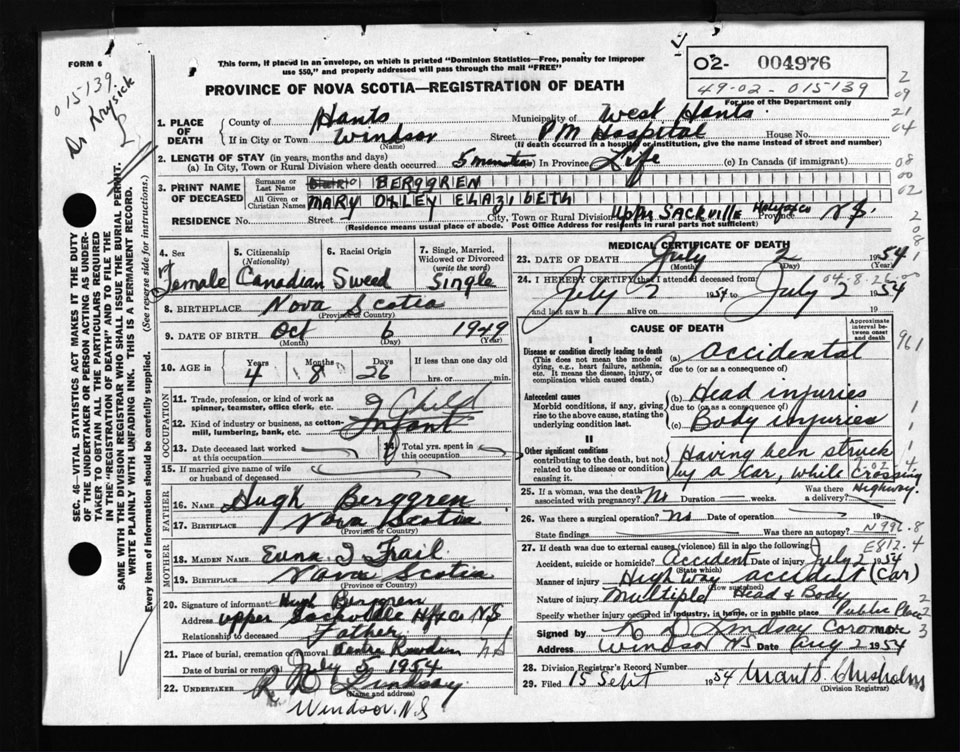 FORM 6
This form, if placed in an envelope, on which is printed "Dominion Statistics—Free, penalty for improper
use $50," and properly addressed will pass through the mail "FREE"
02- 004976
49-02-015-139
For use of the Department only
PROVINCE OF NOVA SCOTIA—REGISTRATION OF DEATH
015-139
Dr Krysick
2
09
21
04
08
00
02
2
08
1
1. PLACE OF DEATH
County of Hants
Municipality of West Hants
If in City or Town Windsor
(Name)
Street PM Hospital House No.
(If death occurred in a hospital or institution, give the name instead of street and number)
2. LENGTH OF STAY (in years, months and days)
(a) In City, Town or Rural Division where death occurred 5 minutes (b) In Province Life (c) In Canada (if immigrant)
3. PRINT NAME OF DECEASED
Surname or Last Name BERGGREN
All Given or Christian Names MARY OHLEY ELAZIBETH
RESIDENCE No. Street City, Town or Rural Division Upper Sackville Halifax Co Province N.S.
(Residence means usual place of abode. Post Office Address for residents in rural parts not sufficient)
4. Sex
Female
5. Citizenship
(Nationality)
Canadian
6. Racial Origin
Sweed
7. Single, Married, Widowed or Divorced
(write the word)
Single
8. BIRTHPLACE Nova Scotia
(Province or Country)
9. DATE OF BIRTH Oct 6 1949
(Month) (Day) (Year)
10. AGE in
Years Months Days If less than one day old
4 8 26 hrs. or min.
OCCUPATION
11. Trade, profession, or kind of work as spinner, teamster, office clerk, etc. Child
12. Kind of industry or business, as cotton-mill, lumbering, bank, etc. Infant
13. Date deceased last worked at this occupation
14. Total yrs. spent in this occupation
15. If married give name of wife or husband of deceased
FATHER
16. NAME Hugh Berggren
17. BIRTHPLACE Nova Scotia
(Province or Country)
MOTHER
18. MAIDEN NAME Edna I Frail
19. BIRTHPLACE Nova Scotia
(Province or Country)
20. Signature of informant Hugh Berggren
Address Upper Sackville Hfx Co N.S
Relationship to deceased Father
21. Place of burial, cremation or removal Centre Rawdon NS
Date of burial or removal July 5 1954
22. UNDERTAKER R D Lindsay
(Name and address)
Windsor, N.S
MEDICAL CERTIFICATE OF DEATH
23. DATE OF DEATH July 2 1954
(Month) (Day) (Year)
24. I HEREBY CERTIFY that I attended deceased from
04-8-26
July 2 1954 to July 2 1954
and last saw h alive on 19
CAUSE OF DEATH
Approximate interval between onset and death
961
I
Disease or condition directly leading to death
(This does not mean the mode of dying, e.g., heart failure, asthenia, etc. It means the disease, injury, or complication which caused death.)
(a) Accidental
due to (or as a consequence of)
Antecedent causes
Morbid conditions, if any, giving rise to the above cause, stating the underlying condition last.
(b) Head injuries
due to (or as a consequence of)
(c) Body injuries
II
Other significant conditions
contributing to the death, but not related to the disease or condition causing it.
Having been struck
by a car, while crossing
Highway.
02
4
25. If a woman, was the death associated with pregnancy? No Duration weeks. Was there a delivery?
26. Was there a surgical operation? No Date of operation
State findings Was there an autopsy? N996.8
27. If death was due to external causes (violence) fill in also the following E812.4
Accident, suicide or homicide? Accident Date of injury July 2 1954
(State which)
Manner of injury Highway accident (Car)
(How sustained)
Nature of injury Multiple Head & Body
Specify whether injury occurred in industry, in home, or in public place Public Place
Signed by R D Lindsay Coroner
Address Windsor NS Date Aug 2 1954
28. Division Registrar's Record Number
29. Filed 15 Sept 1954
Chisholm
(Division Registrar)
SEC. 46—VITAL STATISTICS ACT MAKES IT THE DUTY
OF THE UNDERTAKER OR PERSON ACTING AS UNDER-
TAKER TO OBTAIN ALL THE PARTICULARS REQUIRED
IN THE "REGISTRATION OF DEATH" AND TO FILE THE
SAME WITH THE DIVISION REGISTRAR WHO SHALL ISSUE THE BURIAL PERMIT.
WRITE PLAINLY WITH UNFADING INK. THIS IS A PERMANENT RECORD.
Every item of information should be carefully supplied. (See reverse side for instructions.)